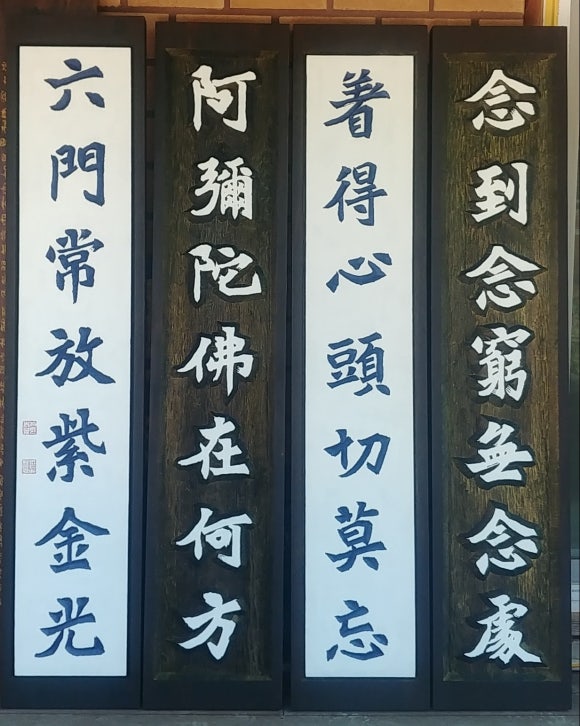 念到念窮無念處
着得心頭切莫忘
阿彌陀佛在何方
六門常放紫金光